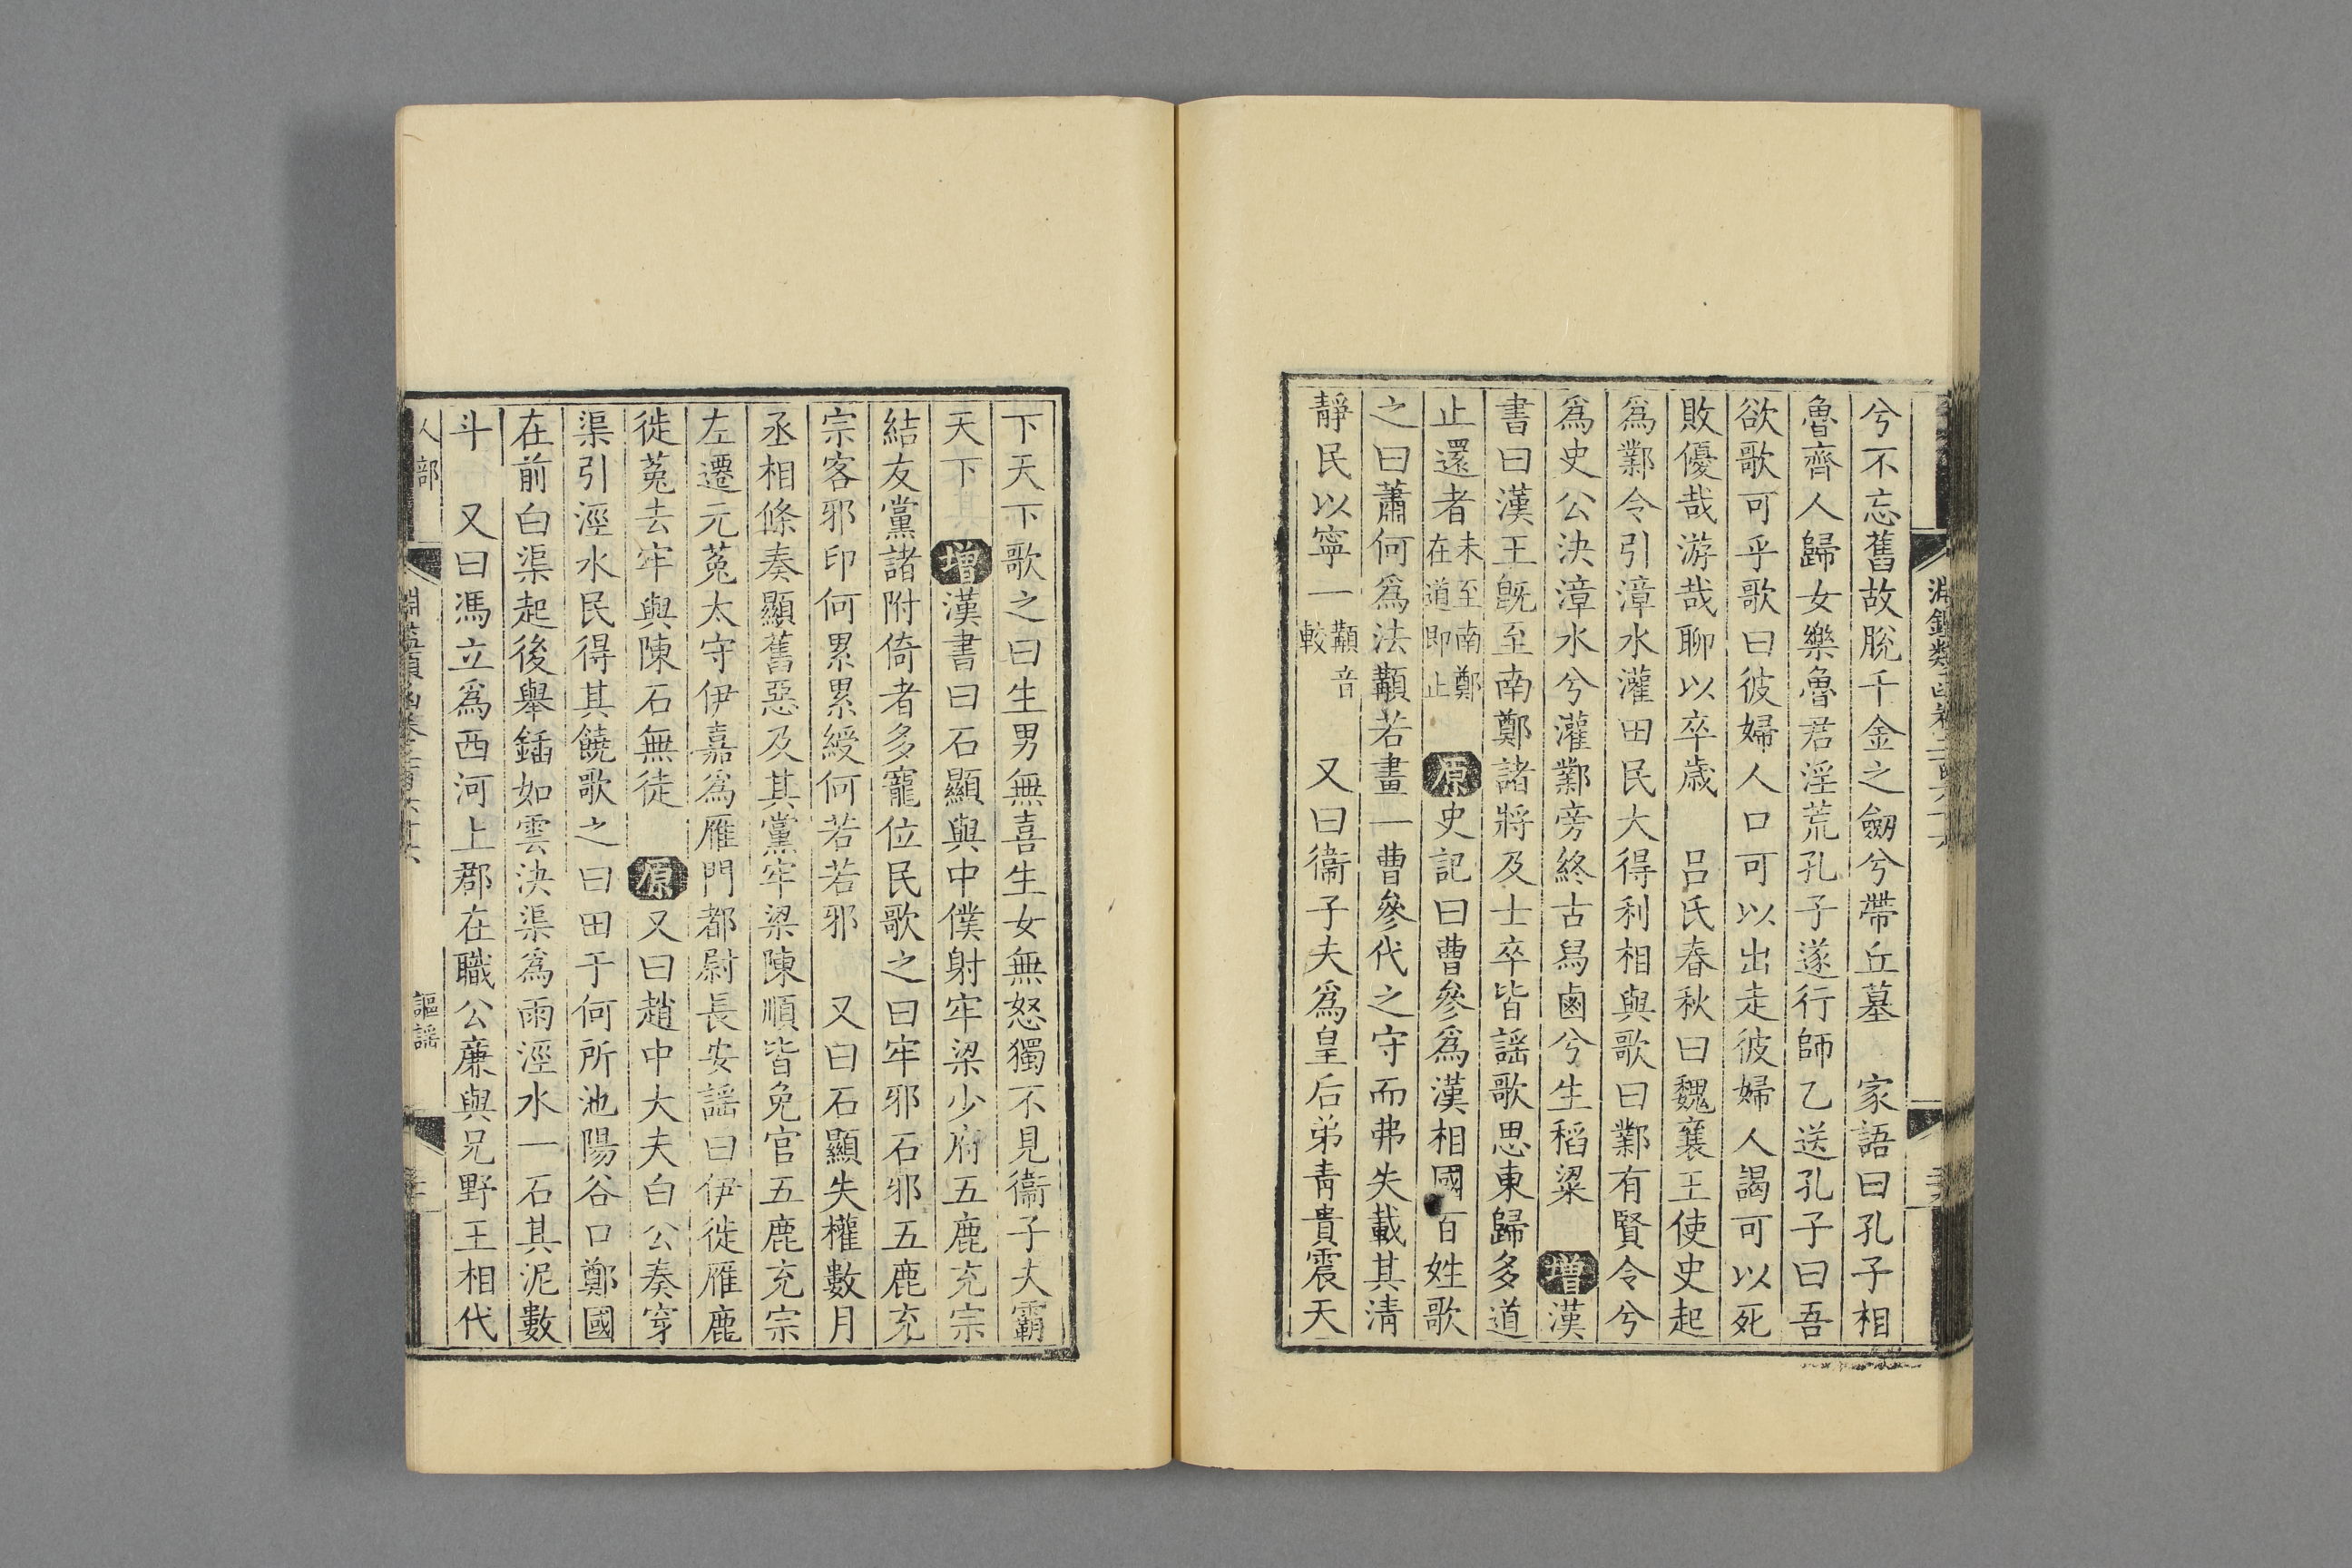 兮不忘舊故脫千金之劒兮帶丘墓　家語曰孔子相
魯齊人歸女樂魯君淫荒孔子遂行師乙送孔子曰吾
欲歌可乎歌曰彼婦人口可以出走彼婦人謁可以死
敗優哉游哉聊以卒歲　呂氏春秋曰魏襄王使史起
爲鄴令引漳水灌田民大得利相與歌曰鄴有賢令兮
爲史公決漳水兮灌鄴旁終古舄鹵兮生稻粱　增漢
書曰漢王旣至南鄭諸將及士卒皆謡歌思東歸多道
止還者未至南鄭在道即止　原史記曰曹參爲漢相國百姓歌
之曰蕭何爲法顜若畫一曹參代之守而弗失載其清
靜民以寧一顜音較　又曰衞子夫爲皇后弟青貴震天
下天下歌之曰生男無喜生女無怒獨不見衞子夫霸
天下　增漢書曰石顯與中僕射牢梁少府五鹿充宗
結友黨諸附倚者多寵位民歌之曰牢邪石邪五鹿充
宗客邪印何累累綬何若若邪　又曰石顯失權數月
丞相條奏顯舊惡及其黨牢梁陳順皆免官五鹿充宗
左遷元菟太守伊嘉爲雁門都尉長安謡曰伊徙雁鹿
徙菟去牢與陳石無徒　原又曰趙中大夫白公奏穿
渠引涇水民得其饒歌之曰田于何所池陽谷口鄭國
在前白渠起後舉鍤如雲決渠爲雨涇水一石其泥數
斗　又曰馮立爲西河上郡在職公廉與兄野王相代
人部　謳謡